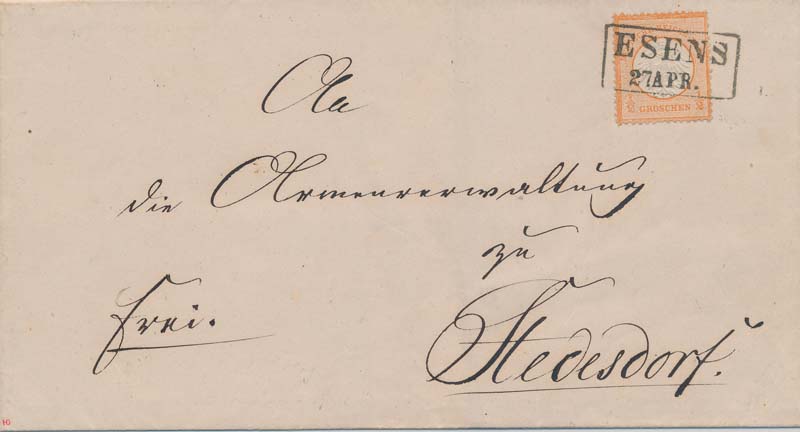 ESENS
27 APR.
GROSCHEN
An
die Armenverwaltung
zu
Stedesdorf.
frei.